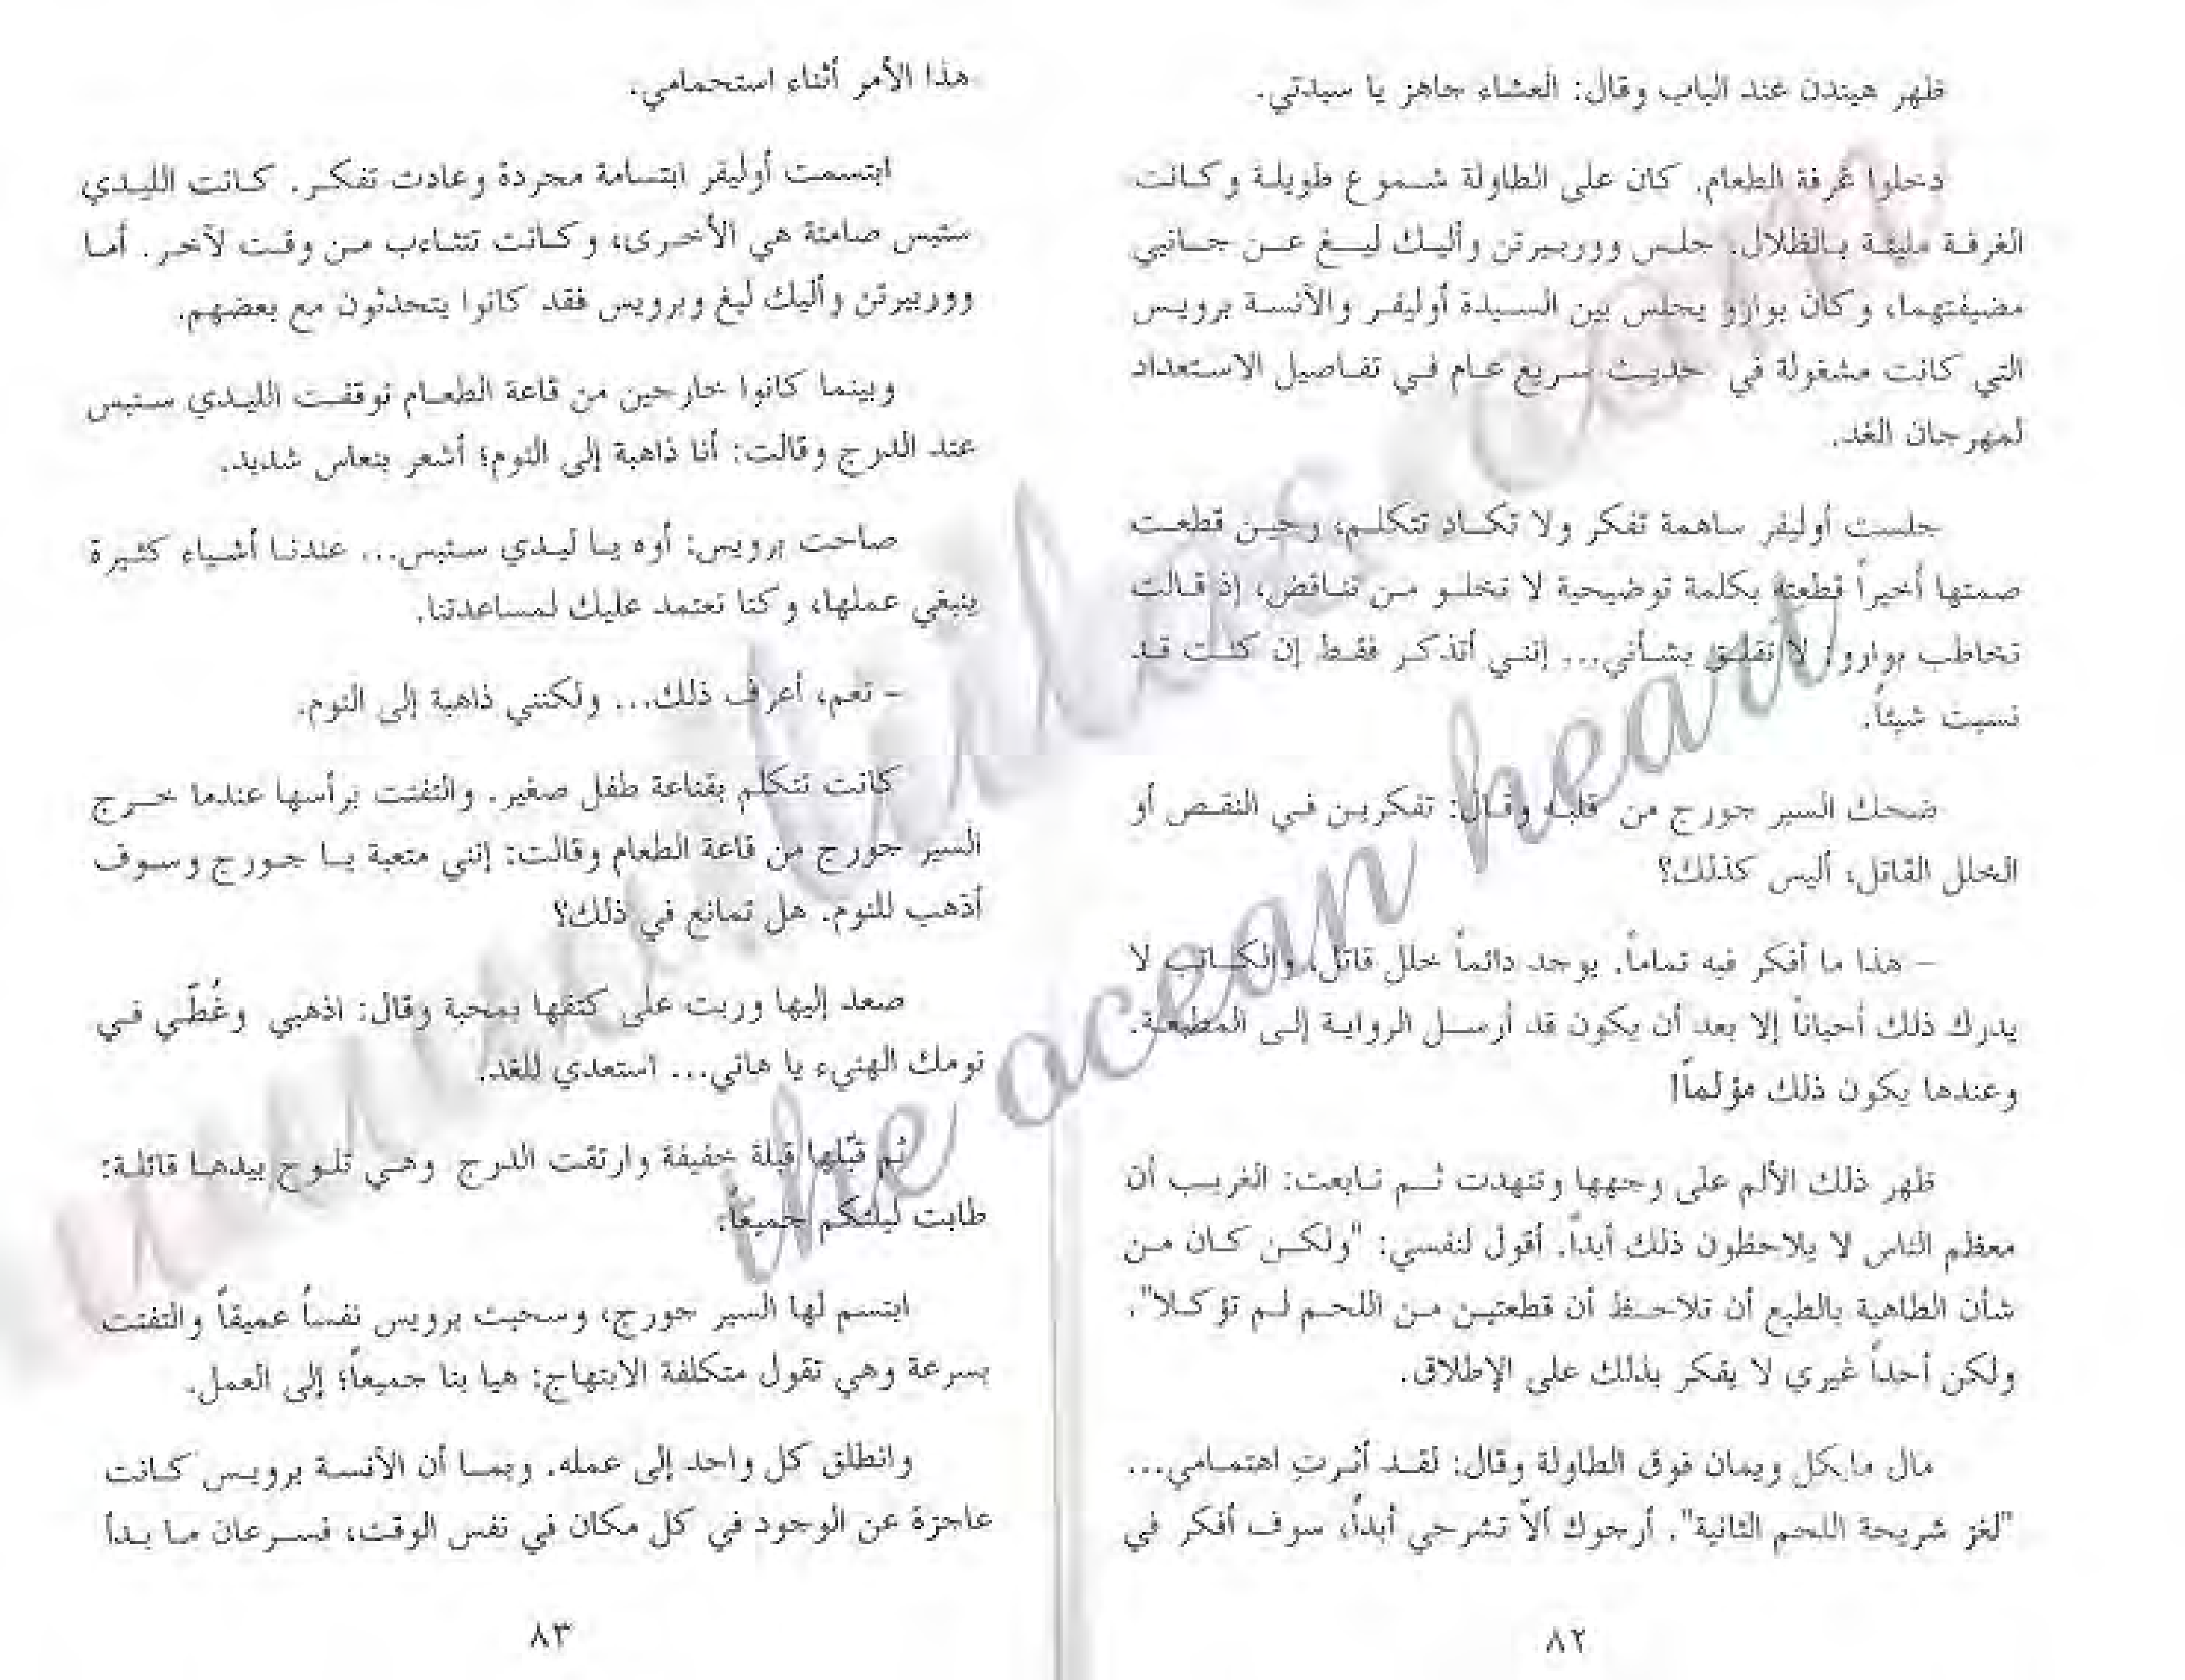 ظهر هيندن عند الباب وقال: العشاء جاهز يا سيدتي.
دخلوا غرفة الطعام. كان على الطاولة شموع طويلة وكانت
الغرفة مليئة بالظلال. جلس ووربيرتن وأليك ليغ عن جانبي
مضيفتهما، وكان بوارو يجلس بين السيدة أوليفر والآنسة برويس
التي كانت مشغولة في حديث سريع عام في تفاصيل الاستعداد
لمهرجان الغد.
جلست أوليفر ساهمة تفكر ولا تكاد تتكلم، وحين قطعت
صمتها أخيراً قطعته بكلمة توضيحية لا تخلو من تناقض، إذ قالت
تخاطب بوارو: لا تقلق بشأني... إنني أتذكر فقط إن كنت قد
نسيت شيئاً.
ضحك السير جورج من قلبه وقال: تفكرين في النقص أو
الخلل القاتل، أليس كذلك؟
- هذا ما أفكر فيه تماماً. يوجد دائماً خلل قاتل، والكاتب لا
يدرك ذلك أحياناً إلا بعد أن يكون قد أرسل الرواية إلى المطبعة.
وعندها يكون ذلك مؤلماً!
ظهر ذلك الألم على وجهها وتنهدت ثم تابعت: الغريب أن
معظم الناس لا يلاحظون ذلك أبداً. أقول لنفسي: "ولكن كان من
شأن الطاهية بالطبع أن تلاحظ أن قطعتين من اللحم لم تؤكلا".
ولكن أحداً غيري لا يفكر بذلك على الإطلاق.
مال مايكل ويمان فوق الطاولة وقال: لقد أثرتِ اهتمامي...
"لغز شريحة اللحم الثانية". أرجوك ألاّ تشرحي أبداً، سوف أفكر في
٨٢
هذا الأمر أثناء استحمامي.
ابتسمت أوليفر ابتسامة مجردة وعادت تفكر. كانت الليدي
ستبس صامتة هي الأخرى، وكانت تتثاءب من وقت لآخر. أما
ووربيرتن وأليك ليغ وبرويس فقد كانوا يتحدثون مع بعضهم.
وبينما كانوا خارجين من قاعة الطعام توقفت الليدي ستبس
عند الدرج وقالت: أنا ذاهبة إلى النوم؛ أشعر بنعاس شديد.
صاحت برويس: أوه يا ليدي ستبس... عندنا أشياء كثيرة
ينبغي عملها، وكنا نعتمد عليك لمساعدتنا.
- نعم، أعرف ذلك... ولكنني ذاهبة إلى النوم.
كانت تتكلم بقناعة طفل صغير. والتفتت برأسها عندما خرج
السير جورج من قاعة الطعام وقالت: إنني متعبة يا جورج وسوف
أذهب للنوم. هل تمانع في ذلك؟
صعد إليها وربت على كتفها بمحبة وقال: اذهبي وغُطّي في
نومك الهنيء يا هاتي... استعدي للغد.
ثم قبّلها قبلة خفيفة وارتقت الدرج وهي تلوح بيدها قائلة:
طابت ليلتكم جميعاً.
ابتسم لها السير جورج، وسحبت برويس نفساً عميقاً والتفتت
بسرعة وهي تقول متكلفة الابتهاج: هيا بنا جميعاً؛ إلى العمل.
وانطلق كل واحد إلى عمله. وبما أن الآنسة برويس كانت
عاجزة عن الوجود في كل مكان في نفس الوقت، فسرعان ما بدأ
٨٣
the ocean heart